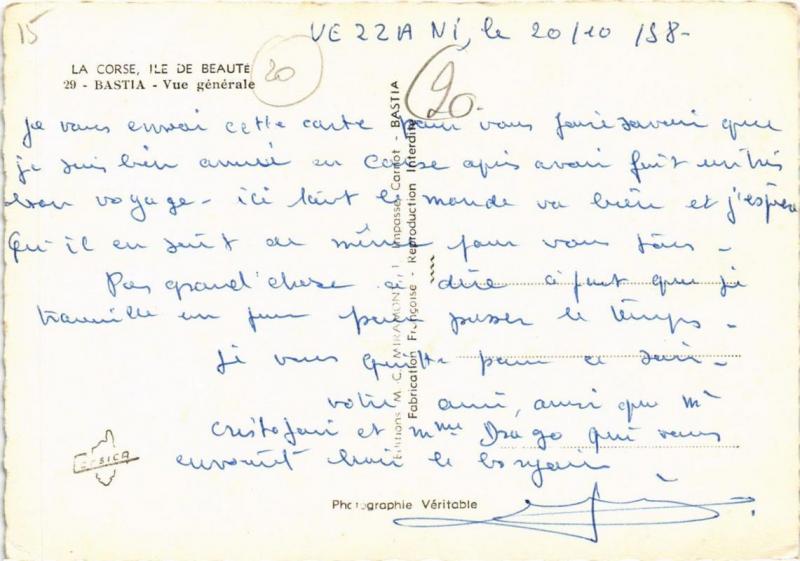 15
VEZZANI, le 20/10/58-
LA CORSE, ILE DE BEAUTÉ
29 - BASTIA - Vue générale
20
20.
je vous envoi cette carte pour vous faire savoir que
je suis bien arrivé en Corse après avoir fait un très
bon voyage - ici tout le monde va bien et j'espère
qu'il en soit de même pour vous tous -
Pas grand'chose à dire à part que je
travaille un peu pour passer le temps -
Je vous quitte pour ce soir -
votre ami, ainsi que Mr
Cristofari et Mme Drago qui vous
envoient le bonjour
Editions M. C. MIRAMONT, 1, Impasse Carnot - BASTIA
Fabrication Française - Reproduction Interdite
CORSICA
Photographie Véritable